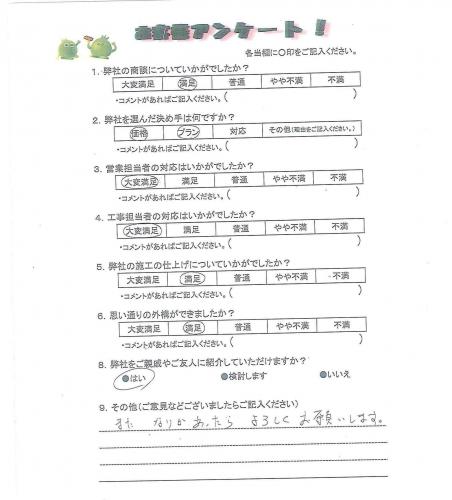 お客様アンケート！
各当欄に〇印をご記入ください。
1. 弊社の商談についていかがでしたか？
大変満足 満足 普通 やや不満 不満
・コメントがあればご記入ください。( )
2. 弊社を選んだ決め手は何ですか？
価格 プラン 対応 その他(理由をご記入ください。)
・コメントがあればご記入ください。( )
3. 営業担当者の対応はいかがでしたか？
大変満足 満足 普通 やや不満 不満
・コメントがあればご記入ください。( )
4. 工事担当者の対応はいかがでしたか？
大変満足 満足 普通 やや不満 不満
・コメントがあればご記入ください。( )
5. 弊社の施工の仕上げについていかがでしたか？
大変満足 満足 普通 やや不満 不満
・コメントがあればご記入ください。( )
6. 思い通りの外構ができましたか？
大変満足 満足 普通 やや不満 不満
・コメントがあればご記入ください。( )
8. 弊社をご親戚やご友人に紹介していただけますか？
●はい ●検討します ●いいえ
9. その他(ご意見などございましたらご記入ください)
また あったら よろしく お願いします。